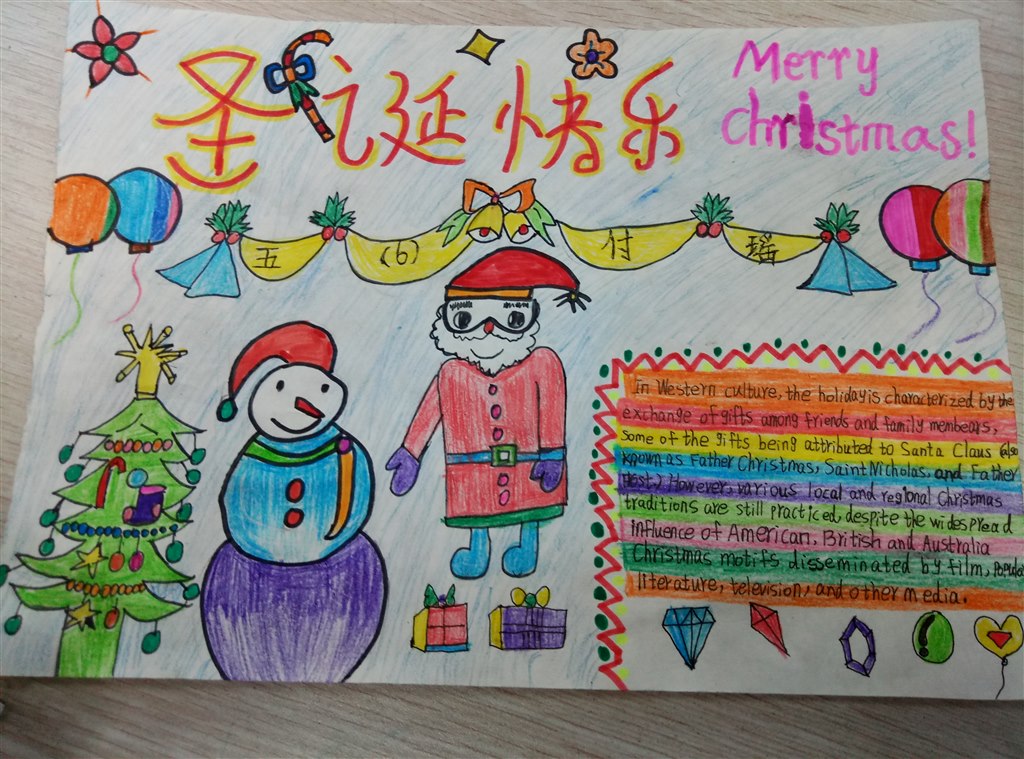 圣诞快乐
Merry
Christmas!
五 (6) 付 瑶
In Western culture, the holiday is characterized by the
exchange of gifts among friends and family membears,
some of the gifts being attributed to Santa Claus (also
known as Father Christmas, Saint Nicholas, and Father
However, various local and regional Christmas
traditions are still practiced, despite the widespread
influence of American, British and Australia
Christmas motifs disseminated by film, popula
literature, television, and other media.